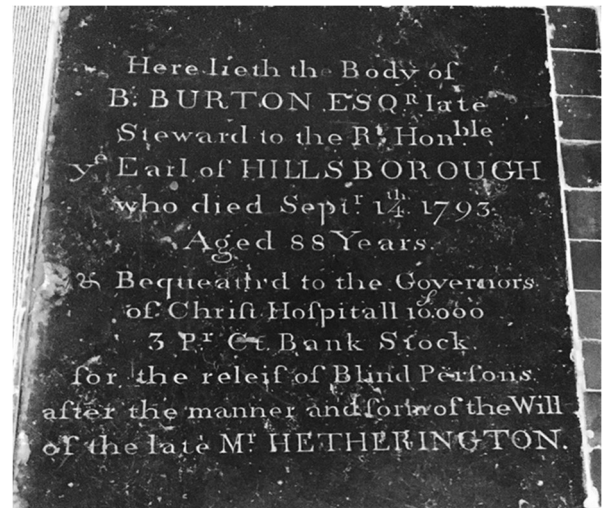 Here lieth the Body of
B. BURTON ESQʳ late
Steward to the Rᵗ Honᵇˡᵉ
yᵉ Earl of HILLSBOROUGH
who died Septʳ. 14ᵗʰ. 1793.
Aged 88 Years.
& Bequeath'd to the Governors
of Chriſt Hoſpitall £10.000
3 Pʳ Cᵗ Bank Stock
for the releif of Blind Perſons
after the manner and form of the Will
of the late Mʳ HETHERINGTON.